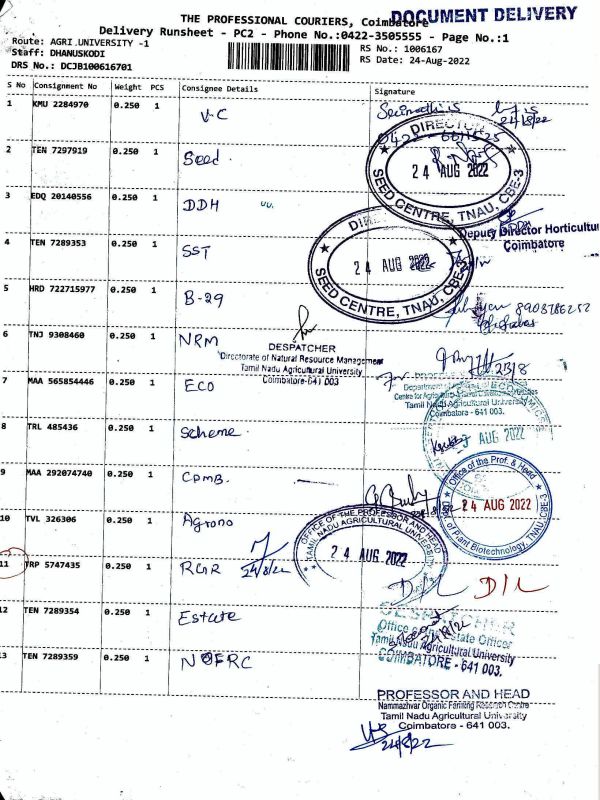 DOCUMENT DELIVERY
THE PROFESSIONAL COURIERS, Coimbatore
Delivery Runsheet - PC2 - Phone No.:0422-3505555 - Page No.:1
Route: AGRI.UNIVERSITY -1
Staff: DHANUSKODI
DRS No.: DCJB100616701
RS No.: 1006167
RS Date: 24-Aug-2022
S No Consignment No Weight PCS Consignee Details Signature
1 KMU 2284970 0.250 1 V-C
24/8/22
2 TEN 7297919 0.250 1 Seed
DIRECTOR
24 AUG 2022
SEED CENTRE, TNAU, CBE-3
3 EDQ 20140556 0.250 1 DDH
Deputy Director Horticultu
Coimbatore
4 TEN 7289353 0.250 1 SST
24 AUG 2022
SEED CENTRE, TNAU, CBE-3
5 HRD 722715977 0.250 1 B-29
6 TNJ 9308460 0.250 1 NRM
DESPATCHER
Directorate of Natural Resource Management
Tamil Nadu Agricultural University
Coimbatore-641 003
7 MAA 565854446 0.250 1 ECO
Tamil Nadu Agricultural University
Coimbatore - 641 003.
AUG 2022
8 TRL 485436 0.250 1 Scheme
9 MAA 292074740 0.250 1 CPMB.
Office of the Prof. & Head
24 AUG 2022
of Plant Biotechnology, TNAU, CBE-3
10 TVL 326306 0.250 1 Agrono
OFFICE OF THE PROFESSOR AND HEAD
TAMIL NADU AGRICULTURAL UNIVERSITY
24 AUG 2022
11 TRP 5747435 0.250 1 24/8/22
D/L D/L
12 TEN 7289354 0.250 1 Estate
Estate Officer
Tamil Nadu Agricultural University
COIMBATORE - 641 003.
13 TEN 7289359 0.250 1 NOFRC
PROFESSOR AND HEAD
Nammazhvar Organic Farming Research Centre
Tamil Nadu Agricultural University
Coimbatore - 641 003.
24/8/22